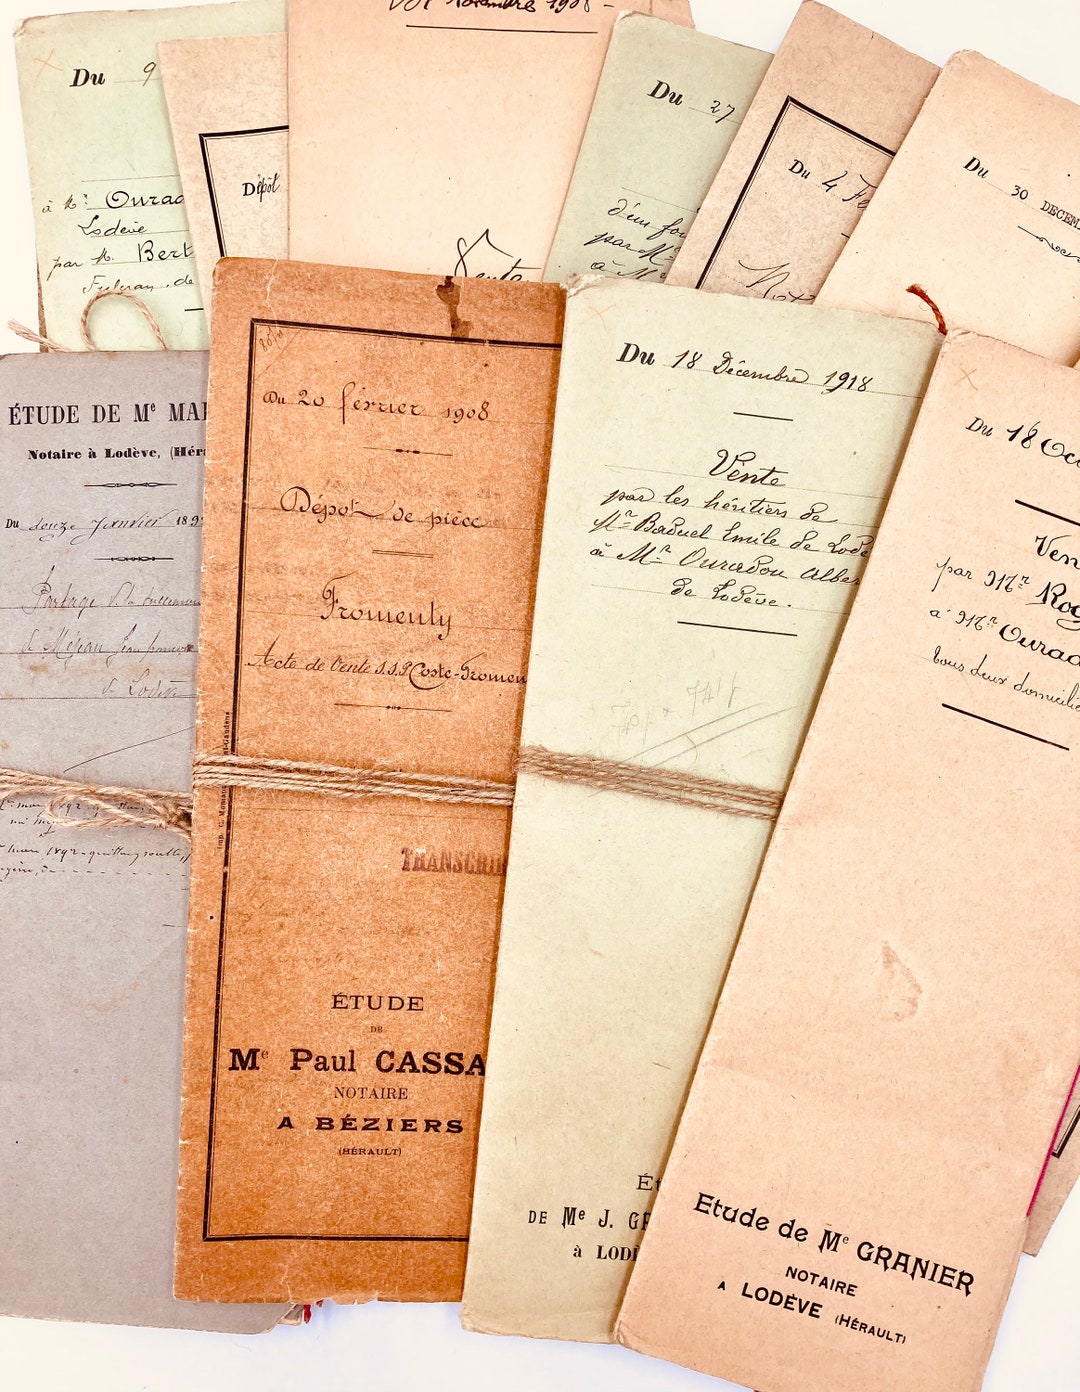 Du 9
à Mr Ourad
Lodève
par M. Bert
Fulcran, de
Dépôt
Novembre 1908
Vente
Du 27
d'un fo
par M
à M
Du 4 Fe
Not
Du 30 DECEM
ÉTUDE DE Me MA
Notaire à Lodève, (Héra
Du douze Janvier 189
Partage
de Méjean
de Lodève
Du 20 février 1908
Dépôt de pièce
Fromenty
Acte de Vente S.S.P Coste-Fromen
TRANSCRI
ÉTUDE
DE
Me Paul CASSA
NOTAIRE
A BÉZIERS
(HÉRAULT)
Du 18 Décembre 1918
Vente
par les héritiers de
Mr Baduel Emile de Lodè
à Mr Ouradou Alber
de Lodève.
Ét
DE Me J. G
à LOD
Du 18 Oc
Ven
par Mr Rog
à Mr Ourad
tous deux domicilié
Etude de Me GRANIER
NOTAIRE
A LODÈVE (HÉRAULT)